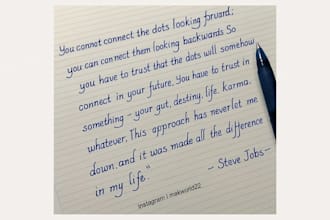 You cannot connect the dots looking forward;
you can connect them looking backwards So
you have to trust that the dots will somehow
connect in your future. You have to trust in
something - your gut, destiny, life, karma,
whatever. This approach has never let me
down, and it was made all the difference
in my life."
- Steve Jobs-
Instagram | makworld22